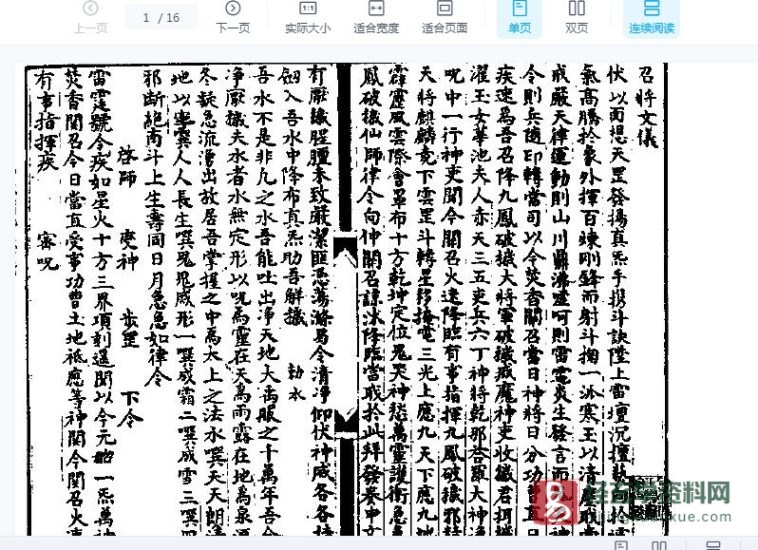 上一页
1 / 16
下一页
实际大小
适合宽度
适合页面
单页
双页
连续阅读
召将文仪
伏以面想天罡發揚真炁手携斗訣陞上雷壇沉檀
氣高騰於象外揮百煉剛鋒而射斗掬一泓寒玉以清塵
戒嚴天律運動則山川鼎沸噓呵則雷電炎生發言而九
令則兵隨印轉當司以今焚香關召當日神將日分功曹直日
疾速為吾召降九鳳破穢大將軍破穢戒魔神吏收穢君
濯玉女華池夫人赤天三五吏兵六丁神將乾那答羅大神
呪中一行神吏聞今關召火速降臨有事指揮九鳳破穢邪
天將麒麟竟下雲罡斗轉星移掩電三光上應九天下應九地
霹靂風雲際會罩布十方乾坤定位鬼哭神愁萬靈護衛急
鳳破穢仙師律令向伸關召諒沐降臨當職於此拜發奏申文
有厭穢腥膻未致嚴潔匪恐蕩滌易令清淨仰伏神威各各
劍入吾水中降布真炁助吾解穢 勅水
吾水不是非凡之水吾能吐出淨天地大禹服之千萬年吾今
淨厭穢夫水者水無定形以呪為靈在天為雨露在地為泉源
冬旋急流湧出故居吾掌握之中為太上之法水噀天天朗清
地以寧噀人人長生噀鬼鬼滅形一噀成霜二噀成雪三噀
邪斷絕南斗上生壽同日月急急如律令
啓師 变神 步罡 下令
雷霆號令疾如星火十方三界頃刻遥聞以今元始一炁萬神
焚香關召今日當直受事功曹土地祗應等神聞今關召火速
有事指揮疾 密呪
易
资料网
xue.com